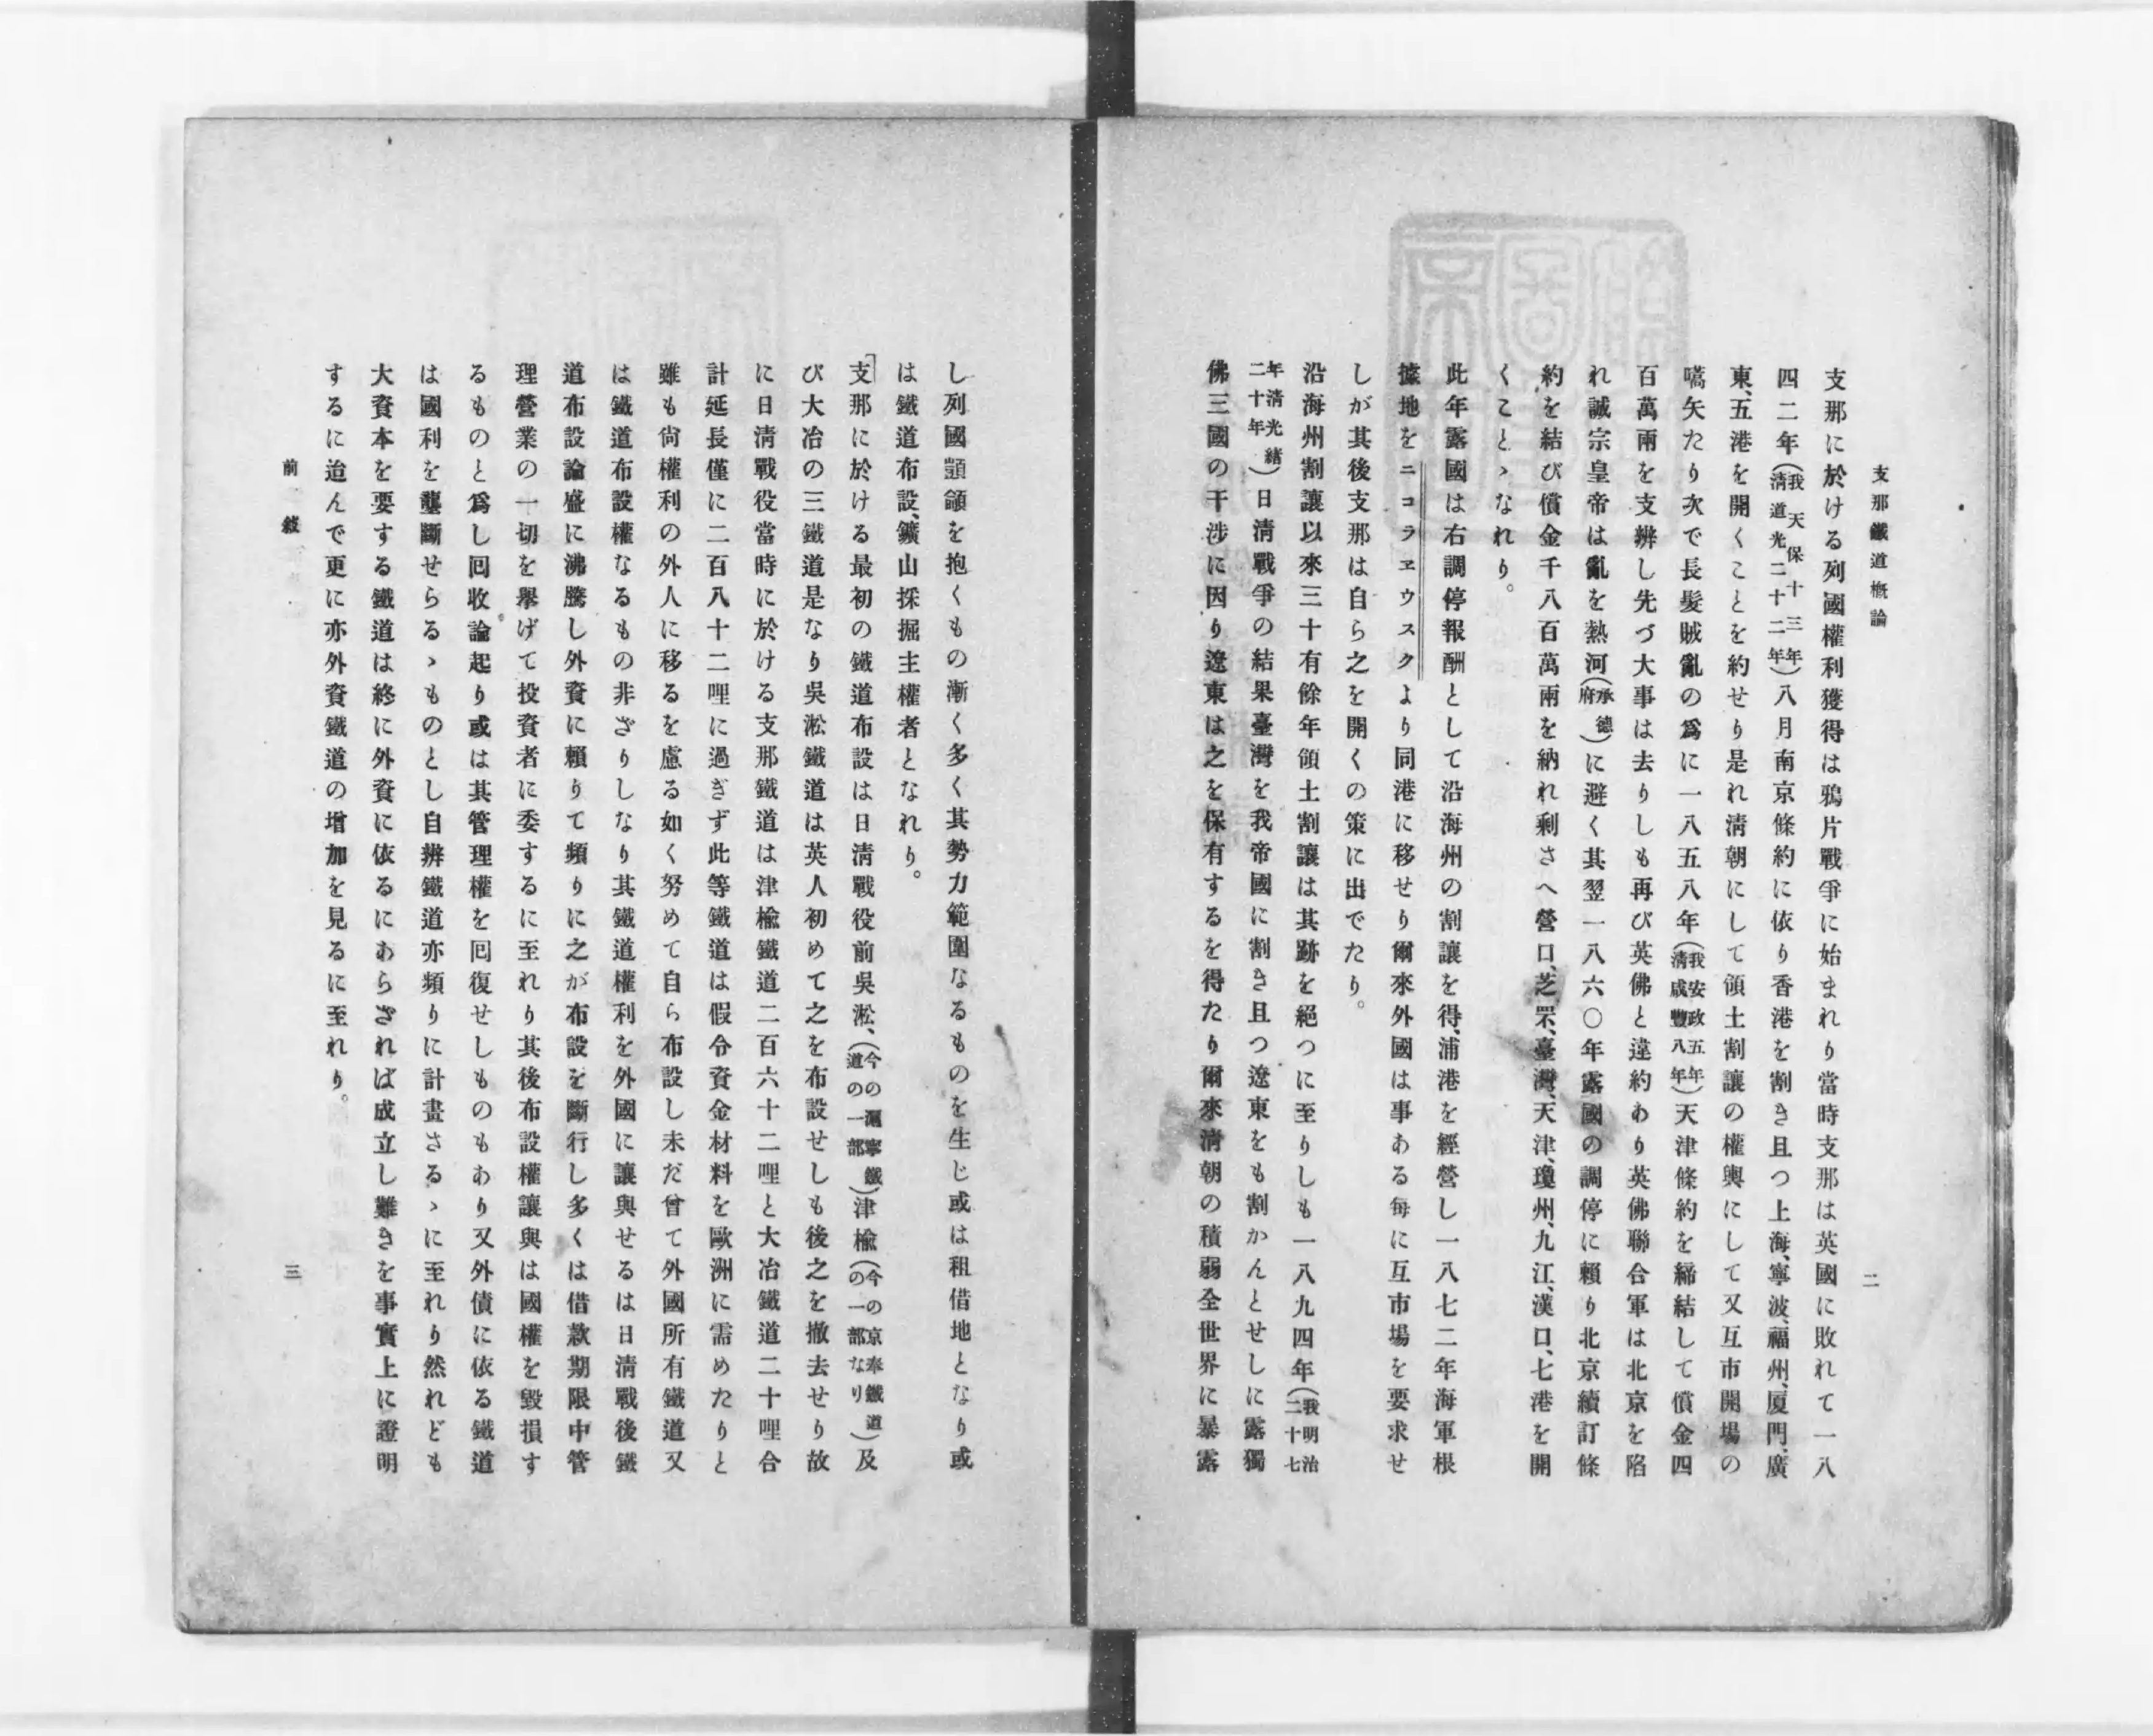 支那鐵道槪論
二
支那に於ける列國權利獲得は鴉片戰爭に始まれり當時支那は英國に敗れて一八
四二年(我天保十三年清道光二十二年)八月南京條約に依り香港を割き且つ上海、寧波、福州、厦門、廣
東、五港を開くことを約せり是れ淸朝にして領土割讓の權輿にして又互市開場の
嚆矢たり次で長髮賊亂の爲に一八五八年(我安政五年清咸豐八年)天津條約を締結して償金四
百萬兩を支辨し先づ大事は去りしも再び英佛と違約あり英佛聯合軍は北京を陷
れ誠宗皇帝は亂を熱河(承德府)に避く其翌一八六〇年露國の調停に賴り北京續訂條
約を結び償金千八百萬兩を納れ剩さへ營口、芝罘、臺灣、天津、瓊州、九江、漢口、七港を開
くことゝなれり。
此年露國は右調停報酬として沿海州の割讓を得、浦港を經營し一八七二年海軍根
據地をニコラヱウスクより同港に移せり爾來外國は事ある每に互市場を要求せ
しが其後支那は自ら之を開くの策に出でたり。
沿海州割讓以來三十有餘年領土割讓は其跡を絕つに至りしも一八九四年(我明治二十七
年清光緖二十年)日淸戰爭の結果臺灣を我帝國に割き且つ遼東をも割かんとせしに露獨
佛三國の干涉に因り遼東は之を保有するを得たり爾來淸朝の積弱全世界に暴露
し列國顗頷を抱くもの漸く多く其勢力範圍なるものを生じ或は租借地となり或
は鐵道布設、鑛山採掘主權者となれり。
支那に於ける最初の鐵道布設は日淸戰役前吳淞、(今の滬寧鐵道の一部)津楡(今の京奉鐵道の一部なり)及
び大冶の三鐵道是なり吳淞鐵道は英人初めて之を布設せしも後之を撤去せり故
に日淸戰役當時に於ける支那鐵道は津楡鐵道二百六十二哩と大冶鐵道二十哩合
計延長僅に二百八十二哩に過ぎず此等鐵道は假令資金材料を歐洲に需めたりと
雖も尙權利の外人に移るを慮る如く努めて自ら布設し未だ曾て外國所有鐵道又
は鐵道布設權なるもの非ざりしなり其鐵道權利を外國に讓與せるは日淸戰後鐵
道布設論盛に沸騰し外資に賴りて頻りに之が布設を斷行し多くは借款期限中管
理營業の一切を擧げて投資者に委するに至れり其後布設權讓與は國權を毀損す
るものと爲し回收論起り或は其管理權を回復せしものもあり又外債に依る鐵道
は國利を壟斷せらるゝものとし自辨鐵道亦頻りに計畫さるゝに至れり然れども
大資本を要する鐵道は終に外資に依るにあらざれば成立し難きを事實上に證明
するに迨んで更に亦外資鐵道の增加を見るに至れり。
前敍
三